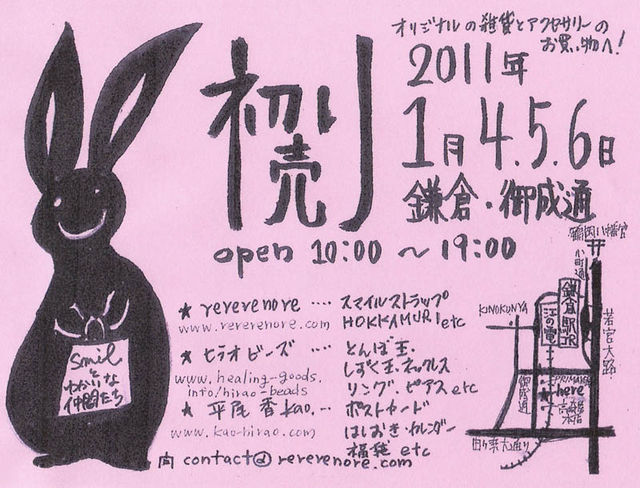 オリジナルの雑貨とアクセサリーの
お買い物へ!
初売り
2011年
1月4.5.6日
鎌倉・御成通
open 10:00 〜 19:00
★ rererenore ‥‥ スマイルストラップ
www.rererenore.com HOKKAMURI etc
★ ヒラオビーズ ‥‥ とんぼ玉
しずく玉ネックレス
www.healing-goods.
info/hirao-beads
リング、ピアス etc
★ 平尾 香 kao.‥ ポストカード
www.kao-hirao.com はしおき・カレンダー
福袋 etc
contact@rererenore.com
smile
と
ゆかいな
仲間たち
鶴岡八幡宮
小町通
KINOKUNYA
江の電
鎌倉駅JR
若宮大路
御成通
★ here
由々桼大通り